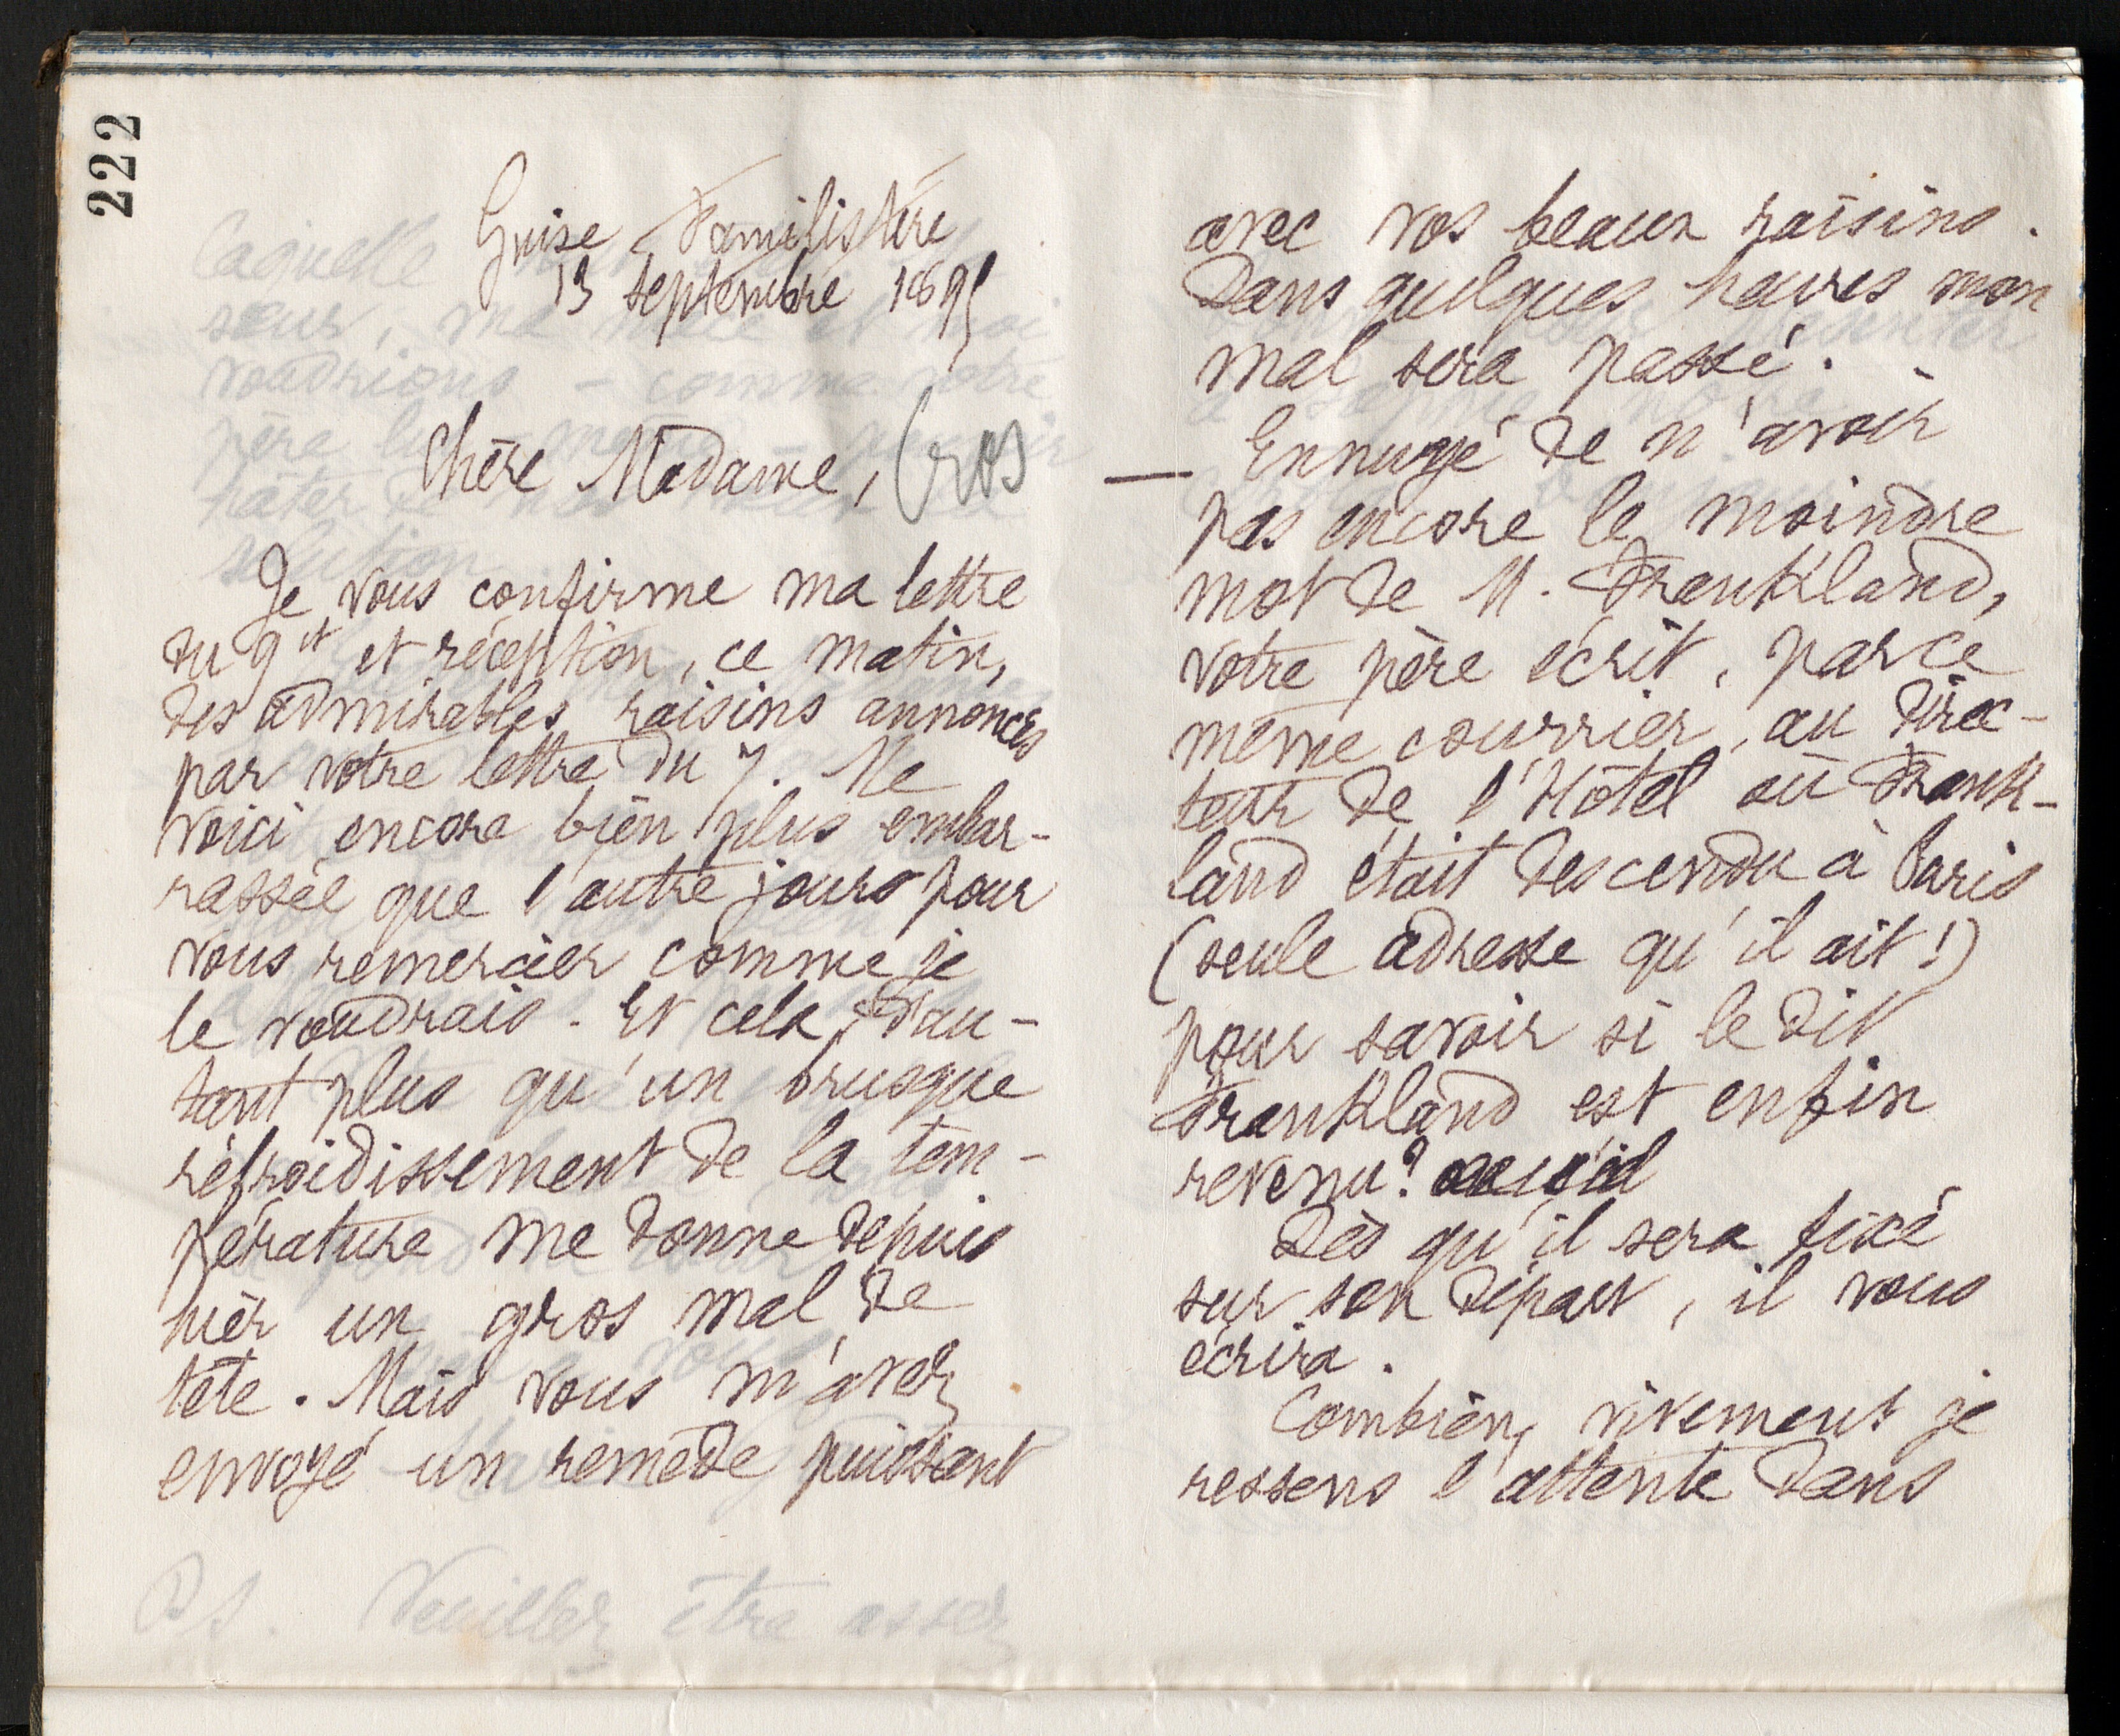 222
Guise Familistère
13 septembre 1895
Chère Madame, Cros
Je vous confirme ma lettre
du 9 et et réception, ce matin,
des admirables raisins annoncés
par votre lettre du 7. Me
voici encore bien plus embar-
rassée que l'autre jour pour
vous remercier comme je
le voudrais. Et cela d'au-
tant plus qu'un brusque
refroidissement de la tem-
pérature me donne depuis
hier un gros mal de
tête. Mais vous m'avez
envoyé un remède puissant
avec vos beaux raisins.
Dans quelques heures mon
mal sera passé.
— Ennuyé de n'avoir
pas encore le moindre
mot de M. Frankland,
votre père écrit, par ce
même courrier, au direc-
teur de l'Hôtel où Frank-
land était descendu à Paris
(seule adresse qu'il ait!)
pour savoir si le dit
Frankland est enfin
revenu?
Dès qu'il sera fixé
sur son départ, il vous
écrira.
Combien vivement je
ressens l'attente dans